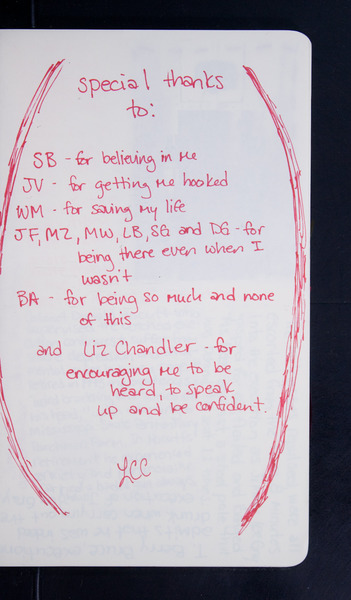 special thanks
to:
SB - for believing in me
JV - for getting me hooked
WM - for saving my life
JF, MZ, MW, LB, SG and DG - for
being there even when I
wasn't
BA - for being so much and none
of this
and Liz Chandler - for
encouraging me to be
heard, to speak
up and be confident.
LCC